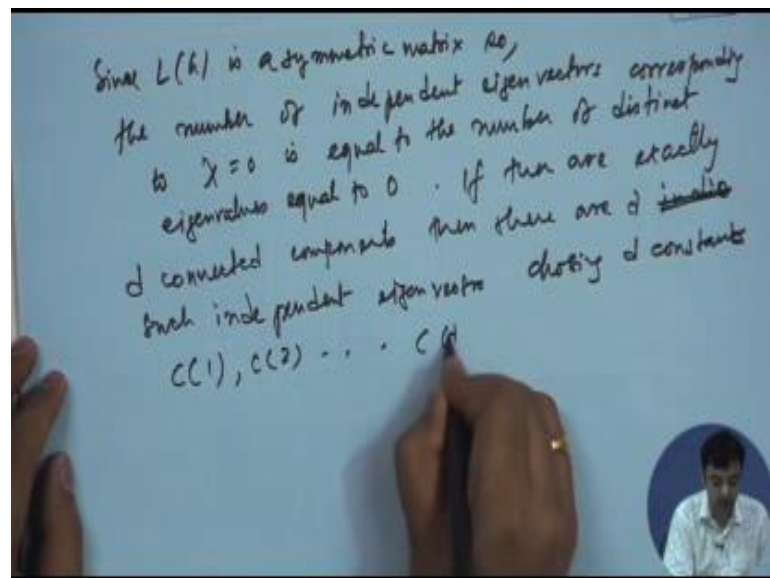 Since L(G) is a symmetric matrix so,
the number of independent eigen vectors corresponding
to λ = 0 is equal to the number of distinct
eigenvalues equal to 0 . If there are exactly
d connected components then there are d
such independent eigen vectors chosing d constants
C(1), C(2) . . . C(